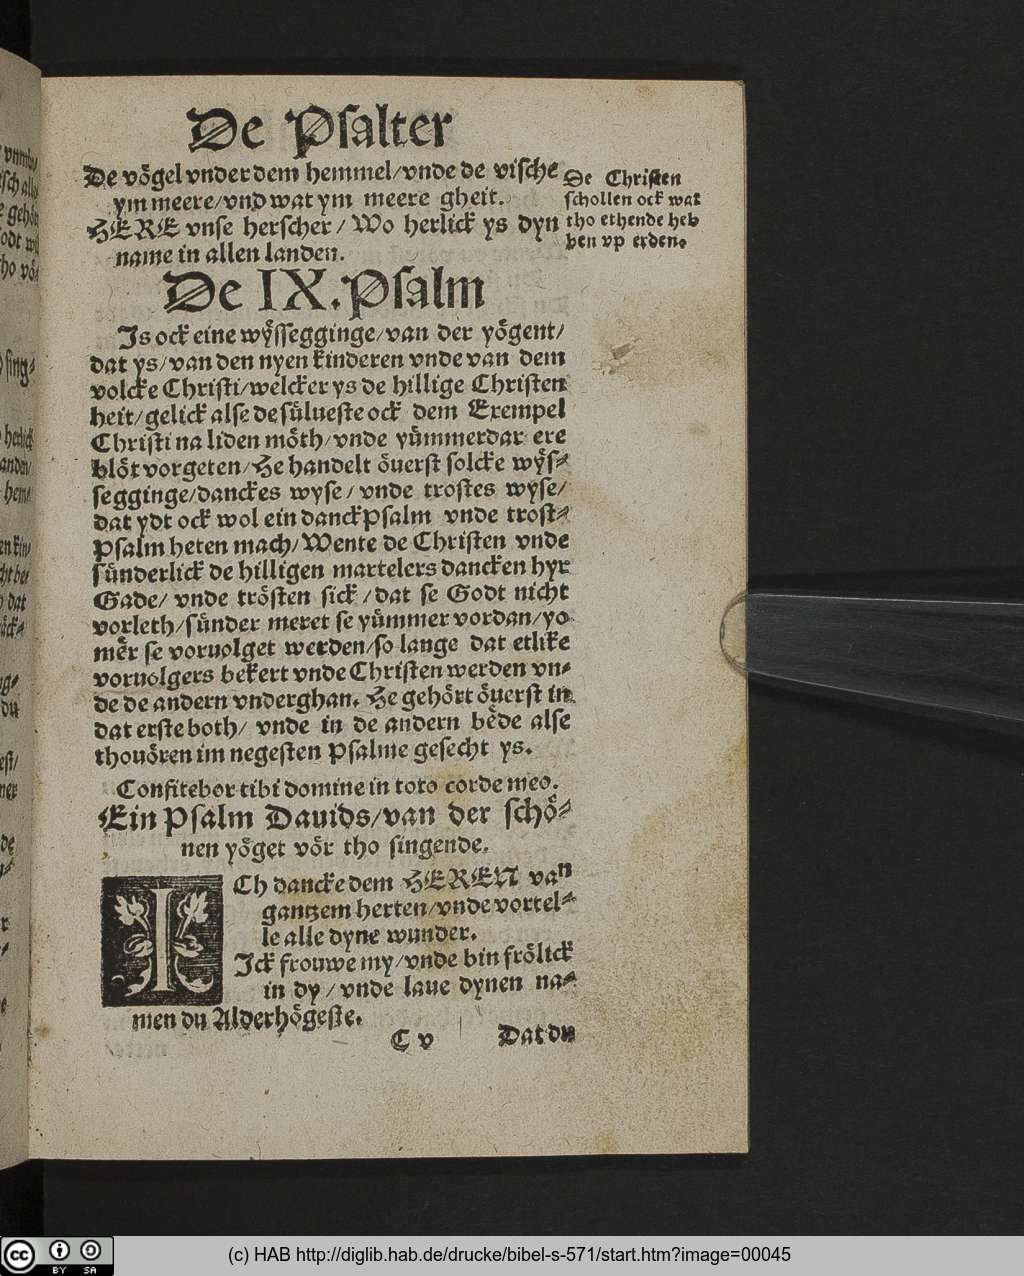 De Psalter
De vögel vnder dem hemmel/vnde de vische
ym meere/vnd wat ym meere gheit.
HERE vnse herscher/Wo herlick ys dyn
name in allen landen.
De Christen
schollen ock wat
tho ethende heb
ben vp erden.
De IX. Psalm
Js ock eine wÿssegginge/van der yögent/
dat ys/van den nyen kinderen vnde van dem
volcke Christi/welcker ys de hillige Christen
heit/gelick alse de sülueste ock dem Exempel
Christi na liden möth/vnde yümmerdar ere
blöt vorgeten/He handelt öuerst solcke wÿs-
segginge/danckes wyse/vnde trostes wyse/
dat ydt ock wol ein danckPsalm vnde trost-
Psalm heten mach/Wente de Christen vnde
sünderlick de hilligen martelers dancken hyr
Gade/vnde trösten sick/dat se Godt nicht
vorleth/sünder meret se yümmer vordan/yo
mër se voruolget werden/so lange dat etlike
voruolgers bekert vnde Christen werden vn-
de de andern vnderghan. He gehört öuerst in
dat erste both/vnde in de andern bëde alse
thouören im negesten Psalme gesecht ys.
Confitebor tibi domine in toto corde meo.
Ein Psalm Dauids/van der schö-
nen yöget vör tho singende.
ICh dancke dem HEREN van
gantzem herten/vnde vortel-
le alle dyne wunder.
Jck frouwe my/vnde bin frölick
in dy/vnde laue dynen na-
men du Alderhögeste.
C v
Dat du
(c) HAB http://diglib.hab.de/drucke/bibel-s-571/start.htm?image=00045
cc BY SA